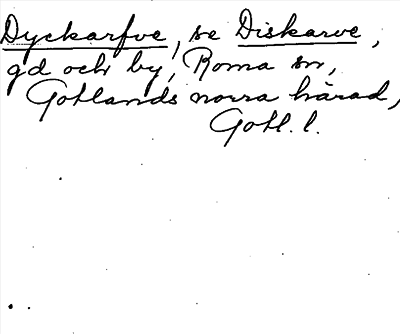 Dyckarfve, se Diskarve,
gd och by, Roma sn,
Gotlands norra härad,
Gotl. l.